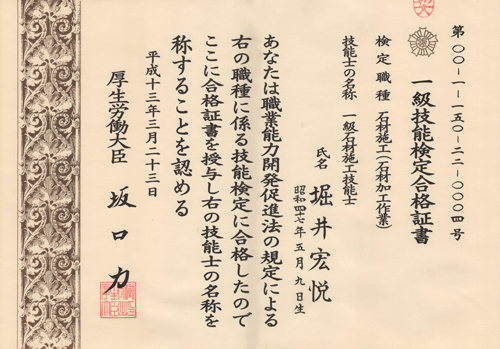 第〇〇-一-一五〇-二二-〇〇〇四号
一級技能検定合格証書
検定職種 石材施工(石材加工作業)
技能士の名称 一級石材施工技能士
氏名 堀井宏悦
昭和四十七年五月九日生
あなたは職業能力開発促進法の規定による
右の職種に係る技能検定に合格したので
ここに合格証書を授与し右の技能士の名称を
称することを認める
平成十三年三月二十三日
厚生労働大臣 坂口力